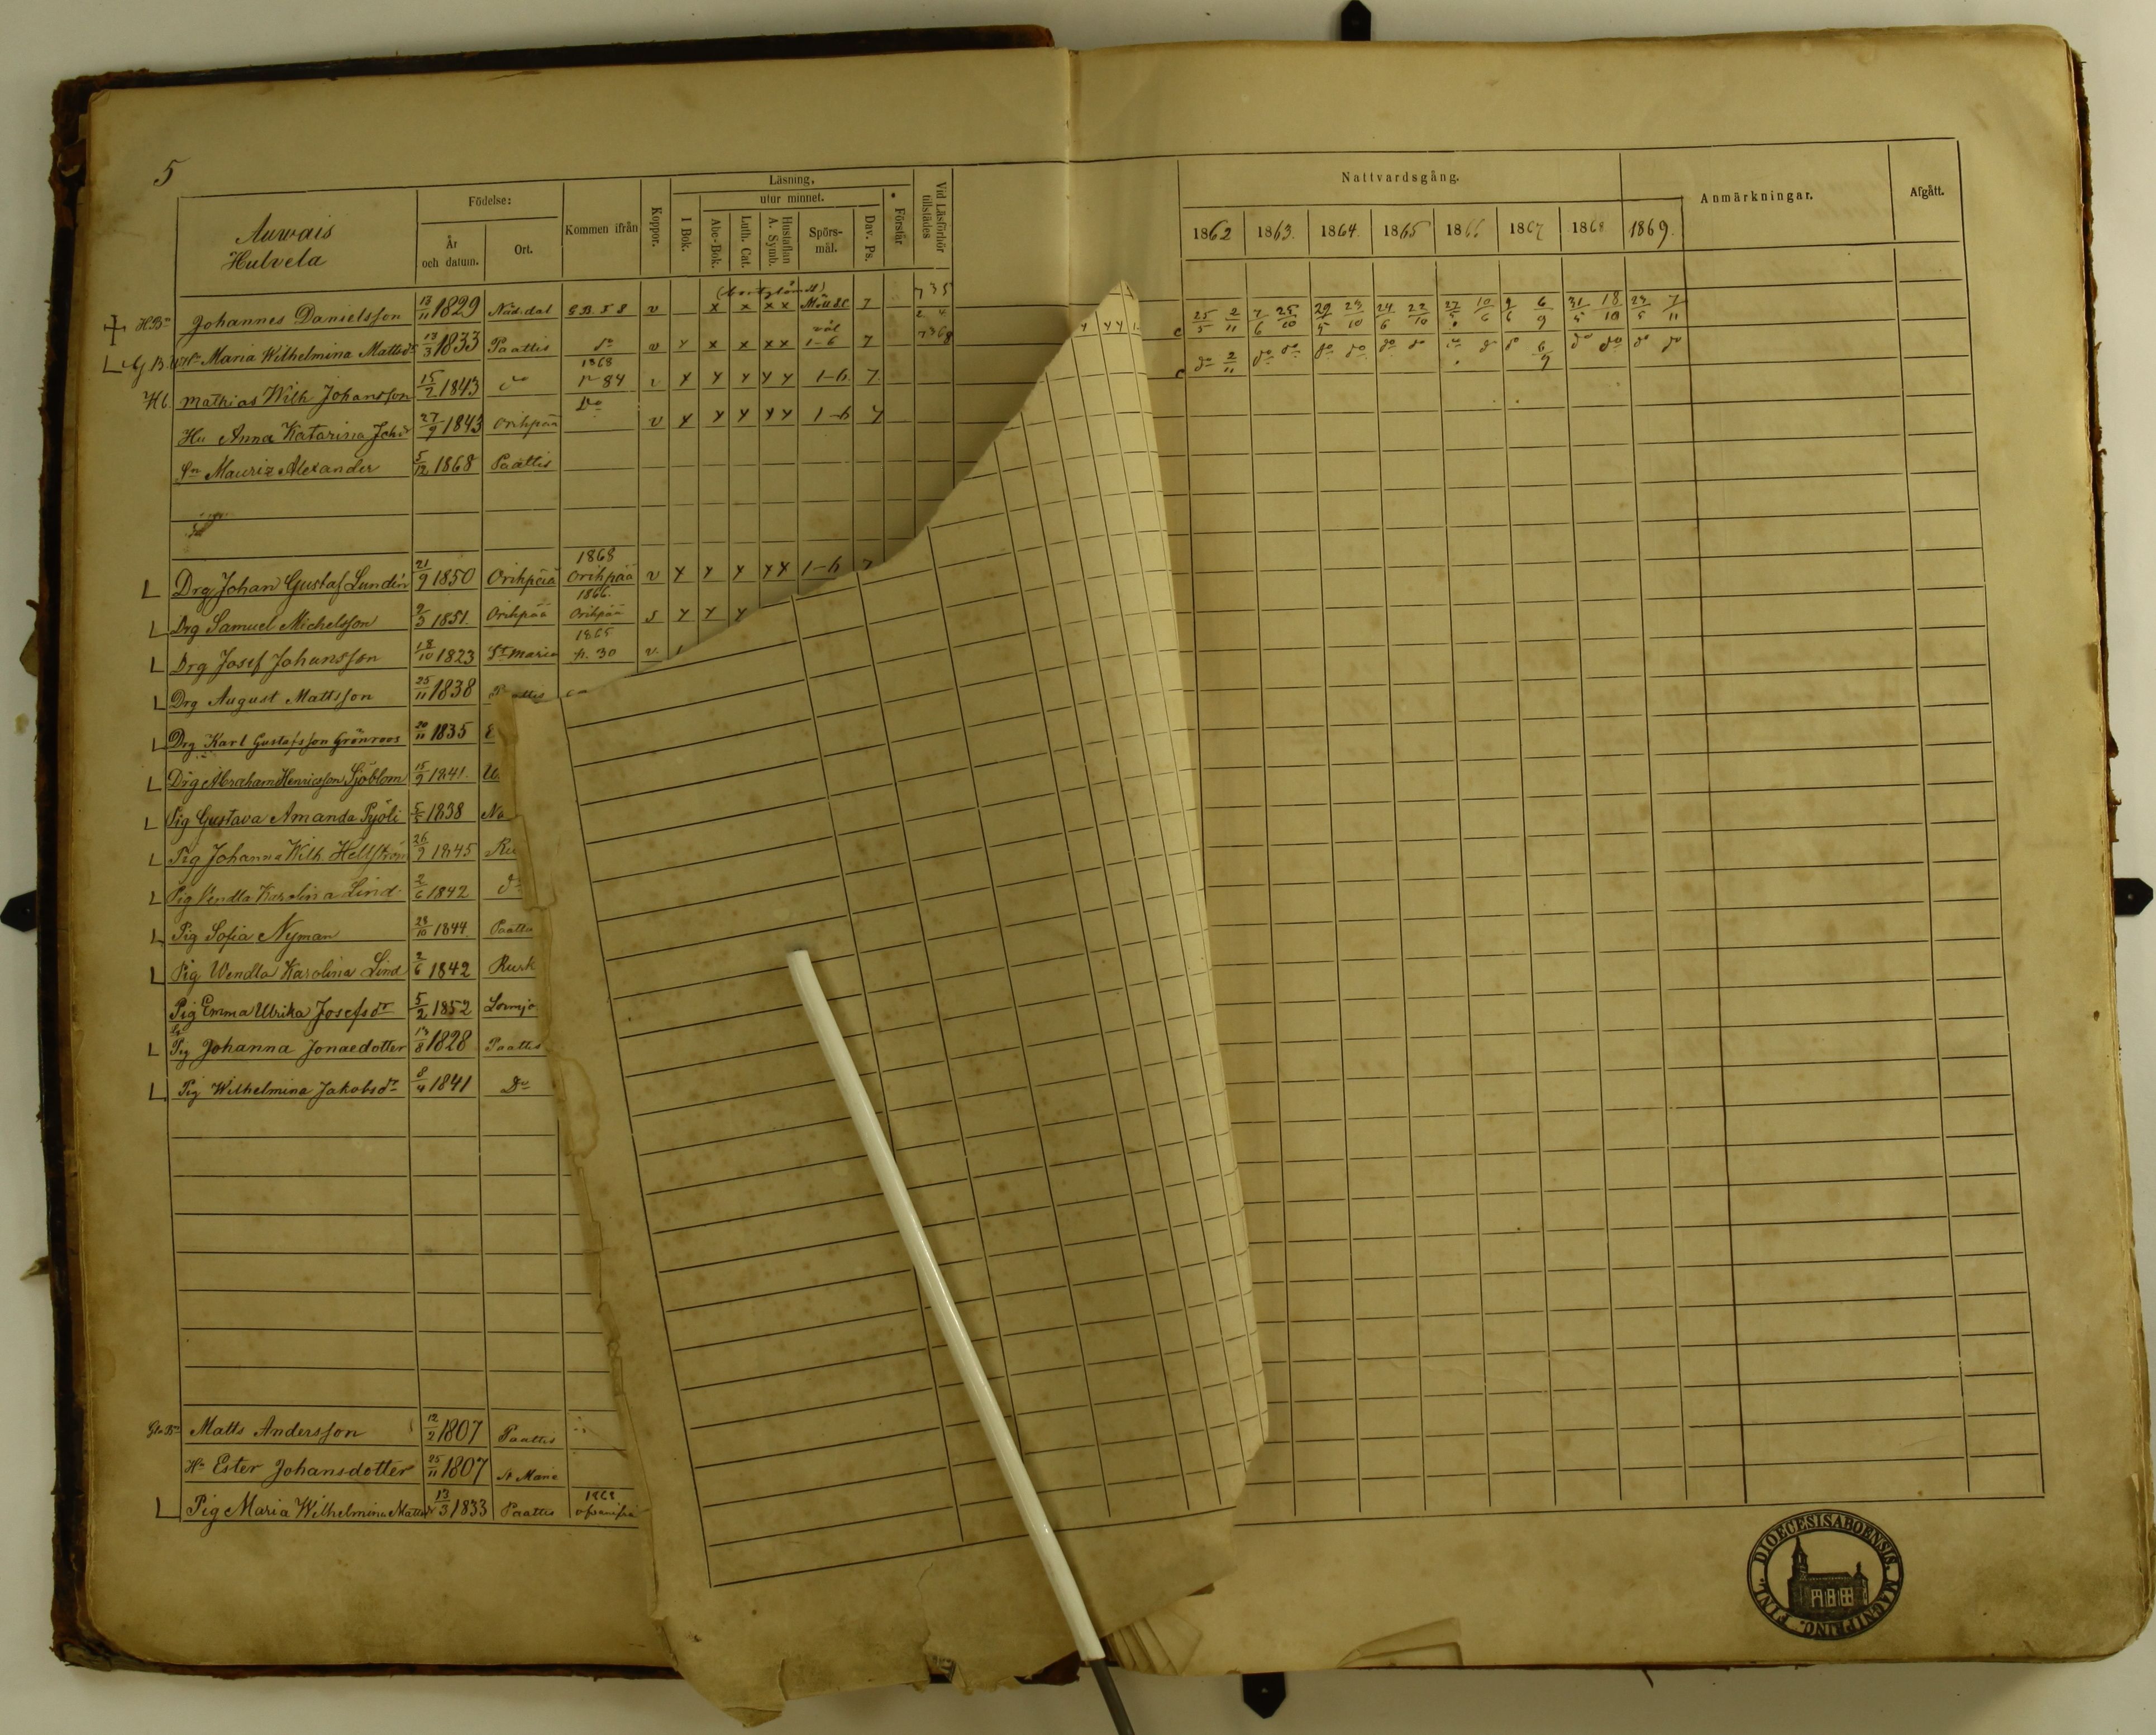 5
Auvais
Hulvela
Födelse:
År och datum.
Ort.
Kommen ifrån
Koppor.
Läsning,
I Bok.
utur minnet.
Abc-Bok.
Luth. Cat.
Hustaflan A. Symb.
Spörs-mål.
Dav. Ps.
Förstår
Vid Läsförhör tillstädes
Nattvardsgång.
1862 1863. 1864. 1865 1866 1867 1868 1869.
Anmärkningar.
Afgått.
Johannes Danielsson 13/11 1829 Nåd.dal v x x x x 7
25/5 2/11 7/6 25/10 29/5 23/10 24/6 22/10 10/6 9/6 6/9 31/5 18/10 23/5 7/11
Hu Maria Wilhelmina Mattsdr 13/3 1833 Paattis do v x x x x 1-6 7
do 2/11 do do do do do do 6/9 do do do do
1868
Hb. Mathias Wilh Johansson 15/2 1843 do p 84 v 1-6 7
Hu Anna Katarina Johdr 27/9 1843 Orihpää Do v 1-6 7
Sn Mauriz Alexander 5/12 1868 Paattis
1868
L Drg Johan Gustaf Lundén 21/9 1850 Orihpää Orihpää v 1-6 7
1866.
L Drg Samuel Michelsson 1851. Orihpää Orihpää s
1865
L Drg Josef Johansson 18/10 1823 St Maria p. 30 v.
L Drg August Mattsson 25/11 1838
L Drg Karl Gustafsson Grönroos 20/11 1835
L Drg Abraham Henricsson Sjöblom 15/9 1841.
L Pig Gustava Amanda Pyöli 5/5 1838 Nå
L Pig Johanna Wilh Hellström 26/9 1845 Ru
L Pig Vendla Karolina Lind 2/6 1842 do
L Pig Sofia Nyman 28/10 1844 Paatti
L Pig Wendla Karolina Lind 2/6 1842 Rusk
Pig Emma Ulrika Josefsdr 5/2 1852 Lemjo
L Pig Johanna Jonaedotter 13/8 1828 Paattis
L Pig Wilhelmina Jakobsdr 8/4 1841 Do
Matts Andersson 12/2 1807 Paattis
Hu Ester Johansdotter 25/11 1807 St Marie
L Pig Maria Wilhelmina Mattsdr 13/3 1833 Paattis
DIOECESIS ABOENSIS. MAGNI PRINC. FINL.